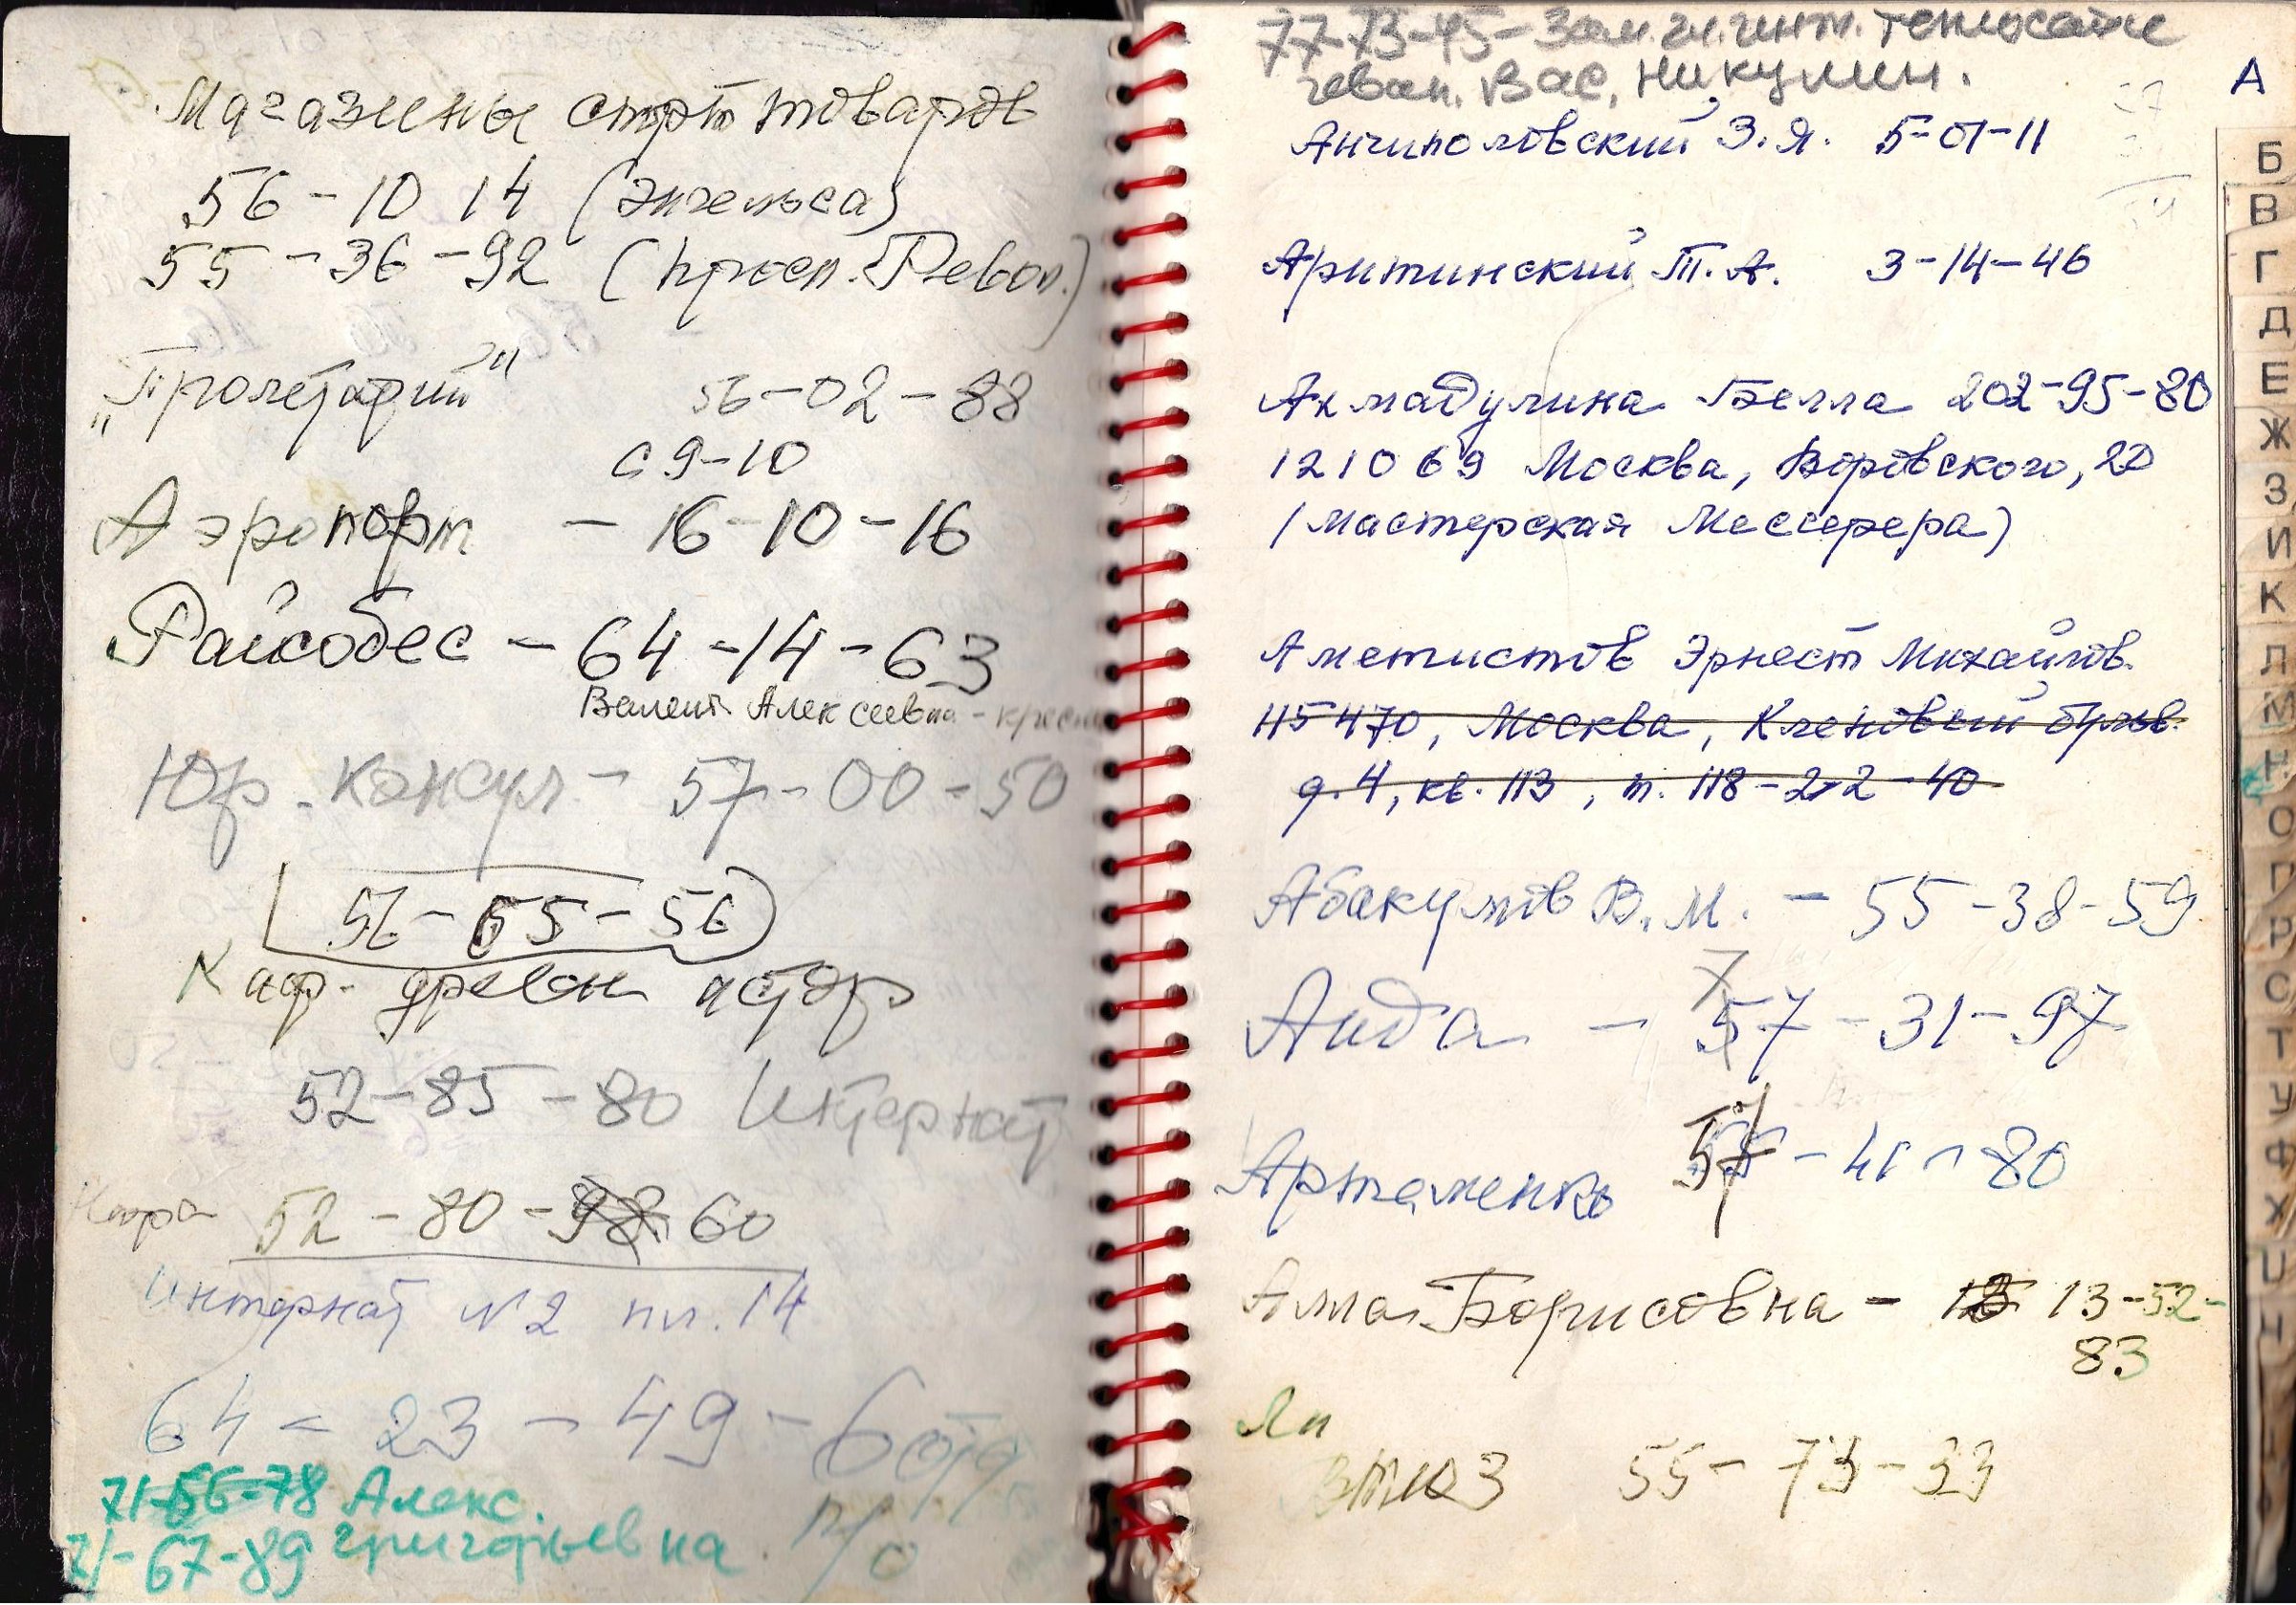 Магазины спорт товаров
56-10 14 (Энгельса)
55-36-92 (просп. Револ.)
„Пролетарий" 56-02-88
с 9-10
Аэропорт - 16-10-16
Райсобес - 64-14-63
Валент. Алексеевна -
Юр. консул - 57-00-50
56-55-56
Каф. древн истор
52-85-80 Интернат
52-80-98 60
Интернат N2 пл. 14
64-23-49-
71-56-78 Алекс.
71-67-89 Григорьевна
77-73-45 - Зам. гл. инж.
Вас. Никулин.
А
Анчиполовский З.Я. 5-01-11
Аритинский Т.А. 3-14-46
Ахмадулина Белла 202-95-80
121069 Москва, Воровского, 20
(мастерская Мессерера)
Аметистов Эрнест Михайлов.
115470, Москва, Кленовый бульв.
д. 4, кв. 113, т. 118-22-40
Абакумов В.М. - 55-38-59
7
Аида - 57-31-97
Артаменко 57-41-80
Алла Борисовна - 13 13-52-
83
55-73-33
Б
В
Г
Д
Е
Ж
З
И
К
Л
М
Н
О
П
Р
С
Т
У
Ф
Х
Ц
Ч